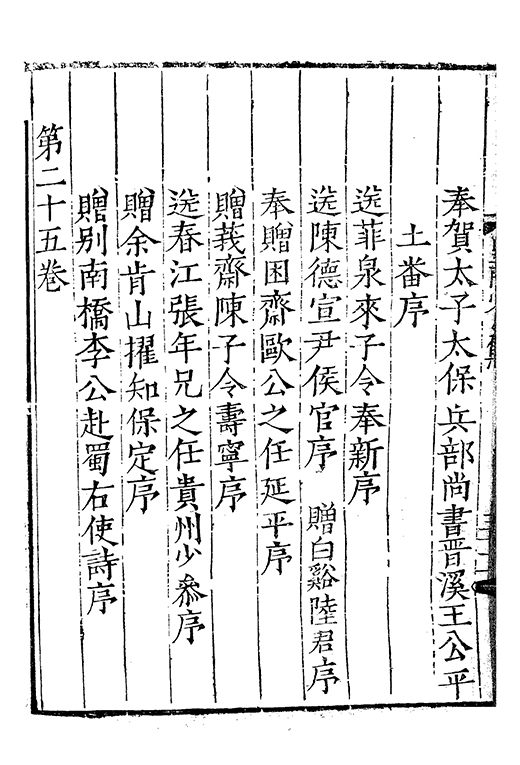 奉賀太子太保兵部尚書晉溪王公平
土番序
送菲泉來子令奉新序
送陳德宣尹侯官序　贈白谿陸君序
奉贈困齋歐公之任延平序
贈莪齋陳子令壽寧序
送春江張年兄之任貴州少叅序
贈余肯山擢知保定序
贈别南橋李公赴蜀右使詩序
第二十五卷